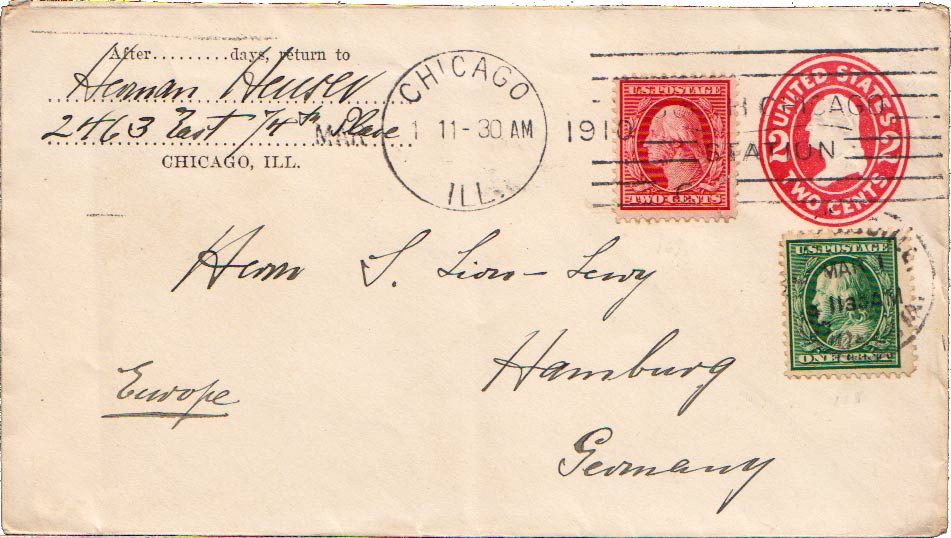 After.........days, return to
Herman Heuser
2463 East 74th Place
CHICAGO, ILL.
CHICAGO
MAR 1 11-30 AM
ILL.
1910
SOUTH CHICAGO
STATION
U.S. POSTAGE
TWO CENTS
UNITED STATES
2 2
TWO CENTS
U.S. POSTAGE
ONE CENT
MAR 1
Herrn S. Lion-Levy
Hamburg
Europe
Germany